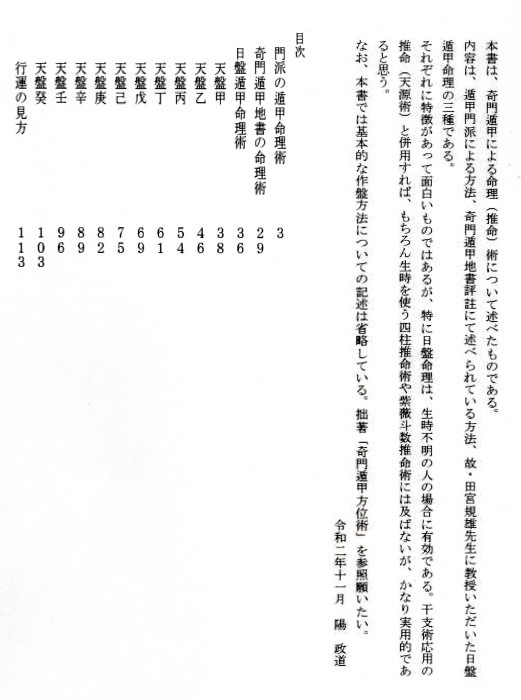 本書は、奇門遁甲による命理（推命）術について述べたものである。
内容は、遁甲門派による方法、奇門遁甲地書評註にて述べられている方法、故・田宮規雄先生に教授いただいた日盤
遁甲命理の三種である。
それぞれに特徴があって面白いものではあるが、特に日盤命理は、生時不明の人の場合に有効である。干支術応用の
推命（天源術）と併用すれば、もちろん生時を使う四柱推命術や紫薇斗数推命術には及ばないが、かなり実用的であ
ると思う。
なお、本書では基本的な作盤方法についての記述は省略している。拙著「奇門遁甲方位術」を参照願いたい。
令和二年十一月　陽　政道
目次
門派の遁甲命理術　3
奇門遁甲地書の命理術　29
日盤遁甲命理術　36
天盤甲　38
天盤乙　46
天盤丙　54
天盤丁　61
天盤戊　69
天盤己　75
天盤庚　82
天盤辛　89
天盤壬　96
天盤癸　103
行運の見方　113